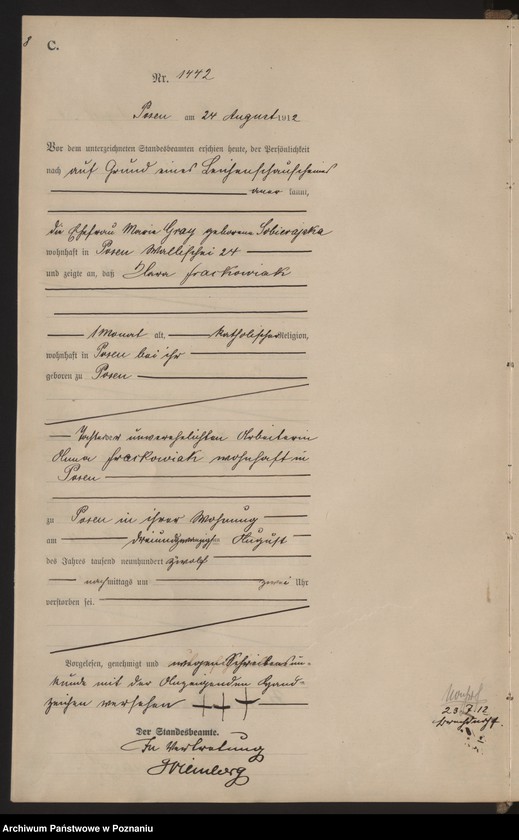 8
C.
Nr. 1442
Posen am 24 August 1912
Vor dem unterzeichneten Standesbeamten erschien heute, der Persönlichkeit
nach auf Grund eines Leichenschauscheines
aner kannt,
die Ehefrau Marie Gray geborene Sobierajska
wohnhaft in Posen Wallischei 24
und zeigte an, daß Klara Frackowiak
1 Monat alt, katholischer Religion,
wohnhaft in Posen bei ihr
geboren zu Posen
Tochter der unverehelichten Arbeiterin
Anna Frackowiak wohnhaft in
Posen
zu Posen in ihrer Wohnung
am dreiundzwanzigsten August
des Jahres tausend neunhundert zwölf
nachmittags um zwei Uhr
verstorben sei.
Vorgelesen, genehmigt und wegen Schreibensun-
kunde mit der Anzeigenden Hand-
zeichen versehen +++
Der Standesbeamte.
In Vertretung
23 7 12
Archiwum Państwowe w Poznaniu